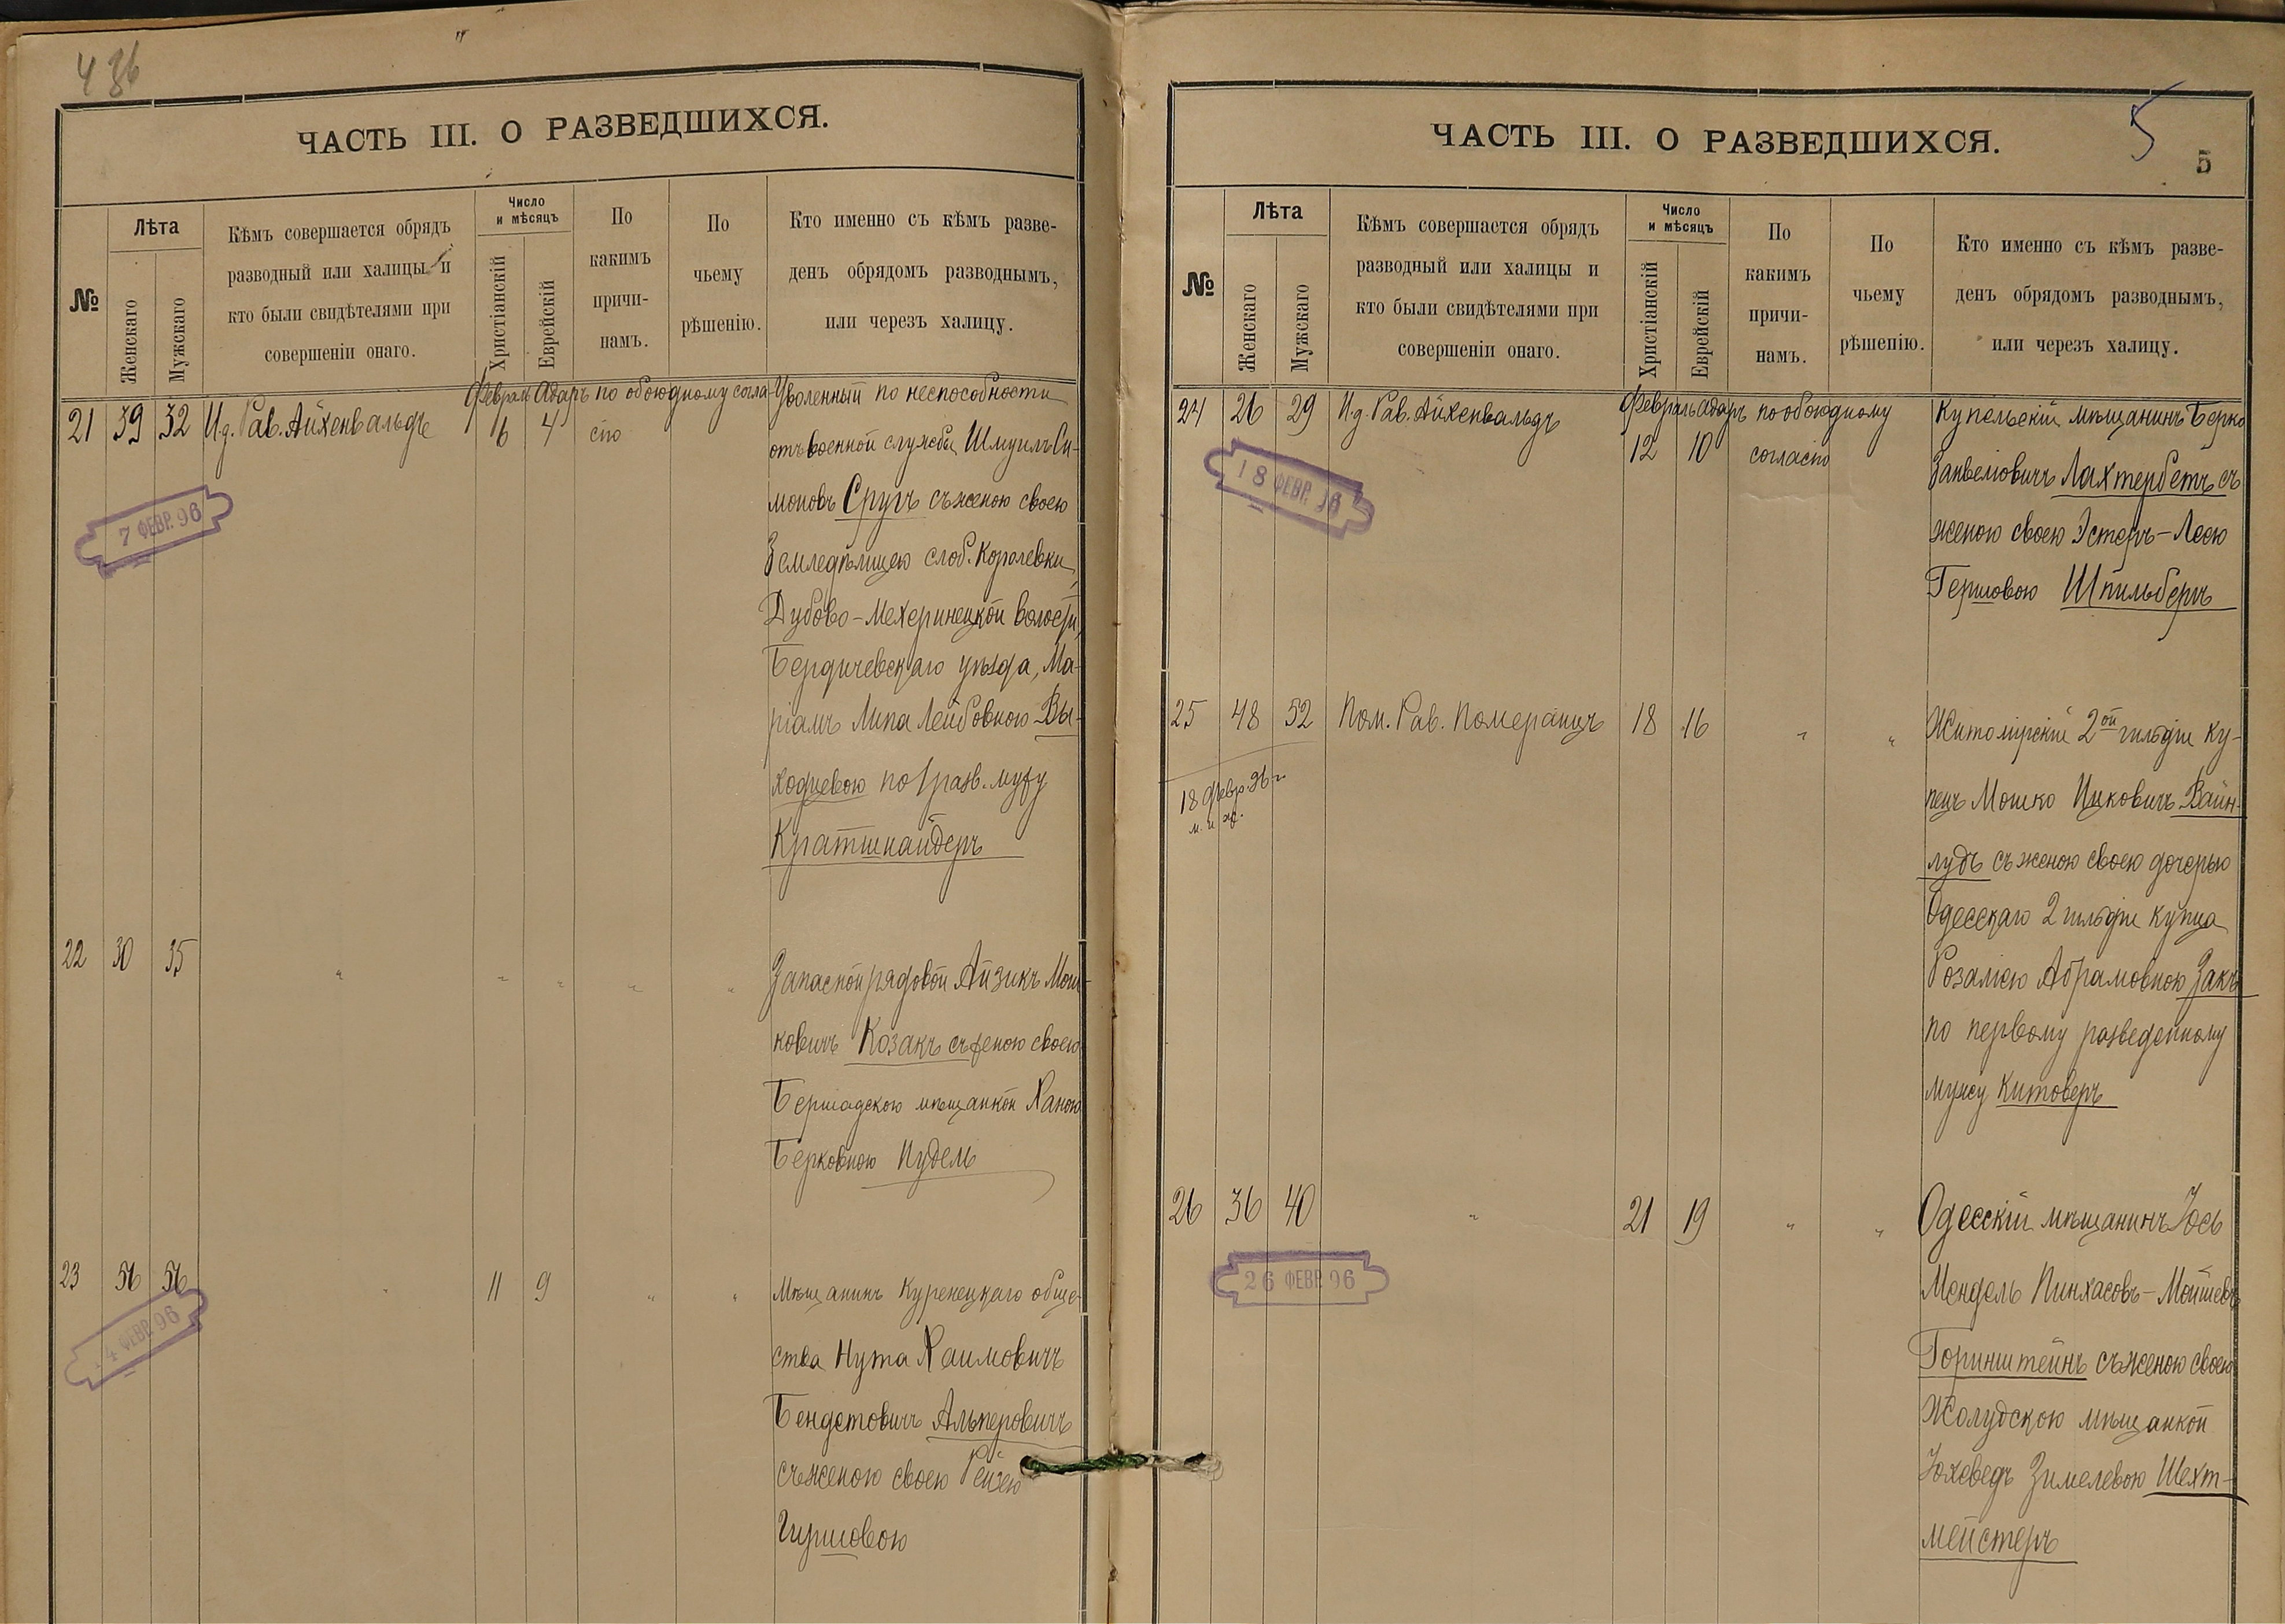 436
ЧАСТЬ III. О РАЗВЕДШИХСЯ.
№
Лѣта
Женскаго
Мужскаго
Кѣмъ совершается обрядъ
разводный или халицы и
кто были свидѣтелями при
совершеніи онаго.
Число
и мѣсяцъ
Христіанскій
Еврейскій
По
какимъ
причи-
намъ.
По
чьему
рѣшенію.
Кто именно съ кѣмъ разве-
денъ обрядомъ разводнымъ,
или черезъ халицу.
Февраль Адаръ по обоюдному согла-
21 39 32 И.д. Рав. Айхенвальдъ 6 4 сію
Уволенный по неспособности
отъ военной службы Шмуилъ Си-
моновъ Спучъ съ женою своею
Земледѣлицею слоб. Королевки,
Дубово-Мехеринецкой волости,
Бердичевскаго уѣзда, Ма-
ріамъ Липа Лейбовною Вы-
ходцевою по 1 разв. мужу
Кратшнайдеръ
7 ФЕВР. 96
22 30 35 " " " " "
Запасной рядовой Айзикъ Мош-
ковичъ Козакъ съ женою своею
Бершадскою мѣщанкой Ханою
Берковною Пудель
23 56 56 " 11 9 " "
Мѣщанинъ Куренецкаго обще-
ства Нута Хаимовичъ
Бендетовичъ Альперовичъ
съ женою своею Рейзею
Гиршовою
4 ФЕВР. 96
ЧАСТЬ III. О РАЗВЕДШИХСЯ.
5
5
№
Лѣта
Женскаго
Мужскаго
Кѣмъ совершается обрядъ
разводный или халицы и
кто были свидѣтелями при
совершеніи онаго.
Число
и мѣсяцъ
Христіанскій
Еврейскій
По
какимъ
причи-
намъ.
По
чьему
рѣшенію.
Кто именно съ кѣмъ разве-
денъ обрядомъ разводнымъ,
или черезъ халицу.
Февраль Адаръ по обоюдному
24 26 29 И.д. Рав. Айхенвальдъ 12 10 согласію
Купельскій мѣщанинъ Берко
Занвеліовичъ Лахтербетъ съ
женою своею Эстеръ-Леею
Гершовою Шпильбергъ
18 ФЕВР. 96
25 48 52 Пом. Рав. Померанцъ 18 16 " "
Житомірскій 2ой гильдіи ку-
пецъ Мошко Ицковичъ Вайн-
лудъ съ женою своею дочерью
Одесскаго 2 гильдіи купца
Розаліею Абрамовною Закъ
по первому разведенному
мужу Китоверъ
18 Февр. 96 г.
26 36 40 " 21 19 " "
Одесскій мѣщанинъ Іось
Мендель Пинхасовъ-Мойшевъ
Горинштейнъ съ женою своею
Жолудскою мѣщанкой
Іохеведъ Зимелевою Шехт-
мейстеръ
26 ФЕВР. 96